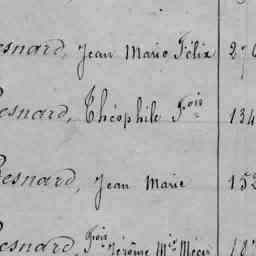 esnard, Jean Marie Félix 276
esnard, Théophile Fois 134
esnard, Jean Marie 153
esnard, Fois Jérôme Mie